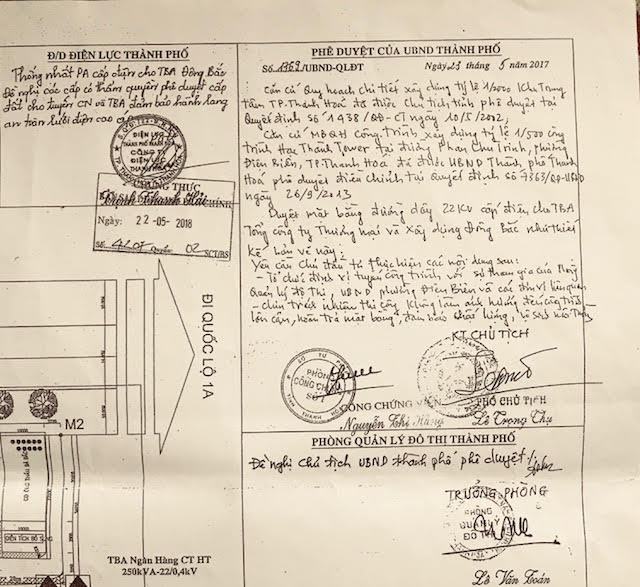 Đ/D ĐIỆN LỰC THÀNH PHỐ
Thống nhất PA cấp điện cho TBA Đông Bắc
Đề nghị các cấp có thẩm quyền phê duyệt cấp
đất cho tuyến CN và TBA đảm bảo hành lang
an toàn lưới điện cao áp
CHỨNG THỰC
Ngày: 22-05-2018
Số 4207 Quyển: 02 SCT/BS
ĐI QUỐC LỘ 1A
M2
TBA Ngân Hàng CT HT
250kVA-22/0,4kV
PHÊ DUYỆT CỦA UBND THÀNH PHỐ
Số 1969/UBND-QLĐT Ngày 23 tháng 5 năm 2017
Căn cứ Quy hoạch chi tiết xây dựng tỷ lệ 1/2000 Khu Trung
tâm TP.Thanh Hoá đã được Chủ tịch tỉnh phê duyệt tại
Quyết định số 1438/QĐ-CT ngày 10/5/2002,
Căn cứ MBQH Công trình xây dựng tỷ lệ 1/500 công
trình Hợp Thành Tower tại đường Phan Chu Trinh, phường
Điện Biên, TP.Thanh Hoá đã được UBND Thành phố Thanh
Hoá phê duyệt điều chỉnh tại Quyết định số 7863/QĐ-UBND
ngày 26/9/2013
Duyệt mặt bằng đường dây 22KV cấp điện cho TBA
Tổng công ty Thương mại và xây dựng Đông Bắc như thiết
kế bản vẽ này;
Yêu cầu Chủ đầu tư thực hiện các nội dung sau:
- Tổ chức định vị tuyến công trình với sự tham gia của Phòng
Quản lý đô thị, UBND phường Điện Biên và các đơn vị liên quan
- chịu trách nhiệm thi công không làm ảnh hưởng đến công trình
lân cận, hoàn trả mặt bằng, đảm bảo chất lượng,
KT CHỦ TỊCH
PHÓ CHỦ TỊCH
Lê Trọng Thụ
PHÒNG
CÔNG CHỨNG
CÔNG CHỨNG VIÊN
Nguyễn Thị Hằng
PHÒNG QUẢN LÝ ĐÔ THỊ THÀNH PHỐ
Đề nghị Chủ tịch UBND thành phố phê duyệt
TRƯỞNG PHÒNG
PHÒNG
QUẢN LÝ
ĐÔ THỊ
Lê Văn Toán